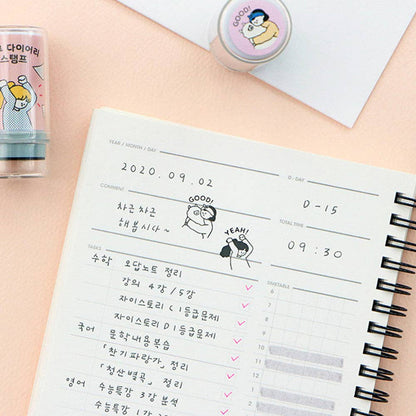 다이어리
스탬프
GOOD!
YEAR / MONTH / DAY
2020.09.02
D-DAY
D-15
COMMENT
차근차근
해봅시다~
GOOD!
YEAH!
TOTAL TIME
09:30
TASKS
TIMETABLE
수학 오답노트 정리
강의 4강/5강
자이스토리 C 1등급문제
자이스토리 D 1등급문제
국어 문학내용복습
「찬기파랑가」 정리
「청산별곡」 정리
영어 수능특강 3강 분석
수능특강
6
7
8
9
10
11
12
1
2